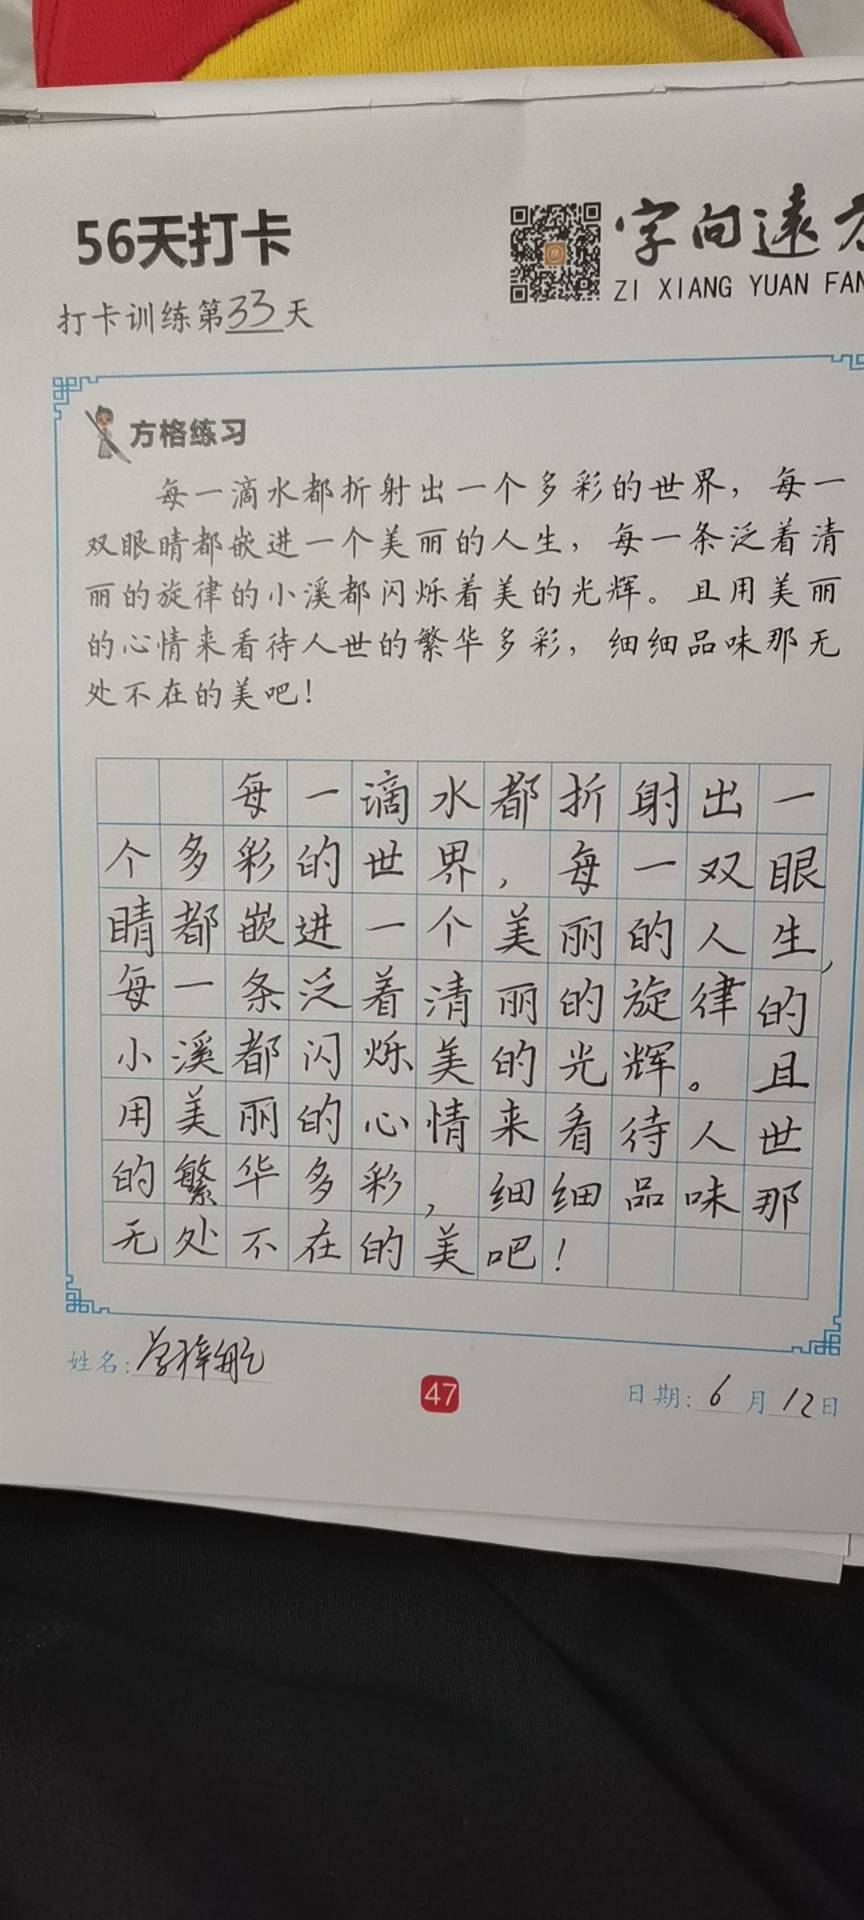 56天打卡
字向遠方
ZI XIANG YUAN FAN
打卡训练第33天
方格练习
每一滴水都折射出一个多彩的世界，每一
双眼睛都嵌进一个美丽的人生，每一条泛着清
丽的旋律的小溪都闪烁着美的光辉。且用美丽
的心情来看待人世的繁华多彩，细细品味那无
处不在的美吧！
每一滴水都折射出一
个多彩的世界，每一双眼
睛都嵌进一个美丽的人生，
每一条泛着清丽的旋律的
小溪都闪烁美的光辉。且
用美丽的心情来看待人世
的繁华多彩，细细品味那
无处不在的美吧！
姓名：
47
日期：6月12日